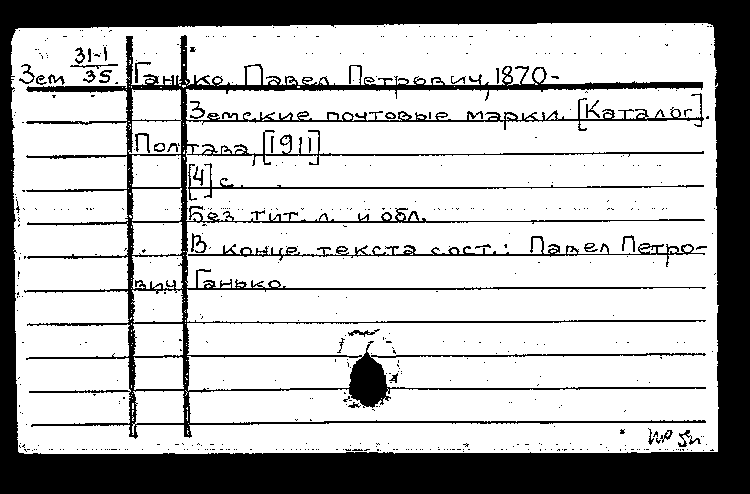 Зем 31-1/35. Ганько, Павел Петрович, 1870-
Земские почтовые марки. [Каталог].
Полтава, [1911]
[4] с.
Без тит. л. и обл.
В конце текста сост.: Павел Петро-
вич Ганько.